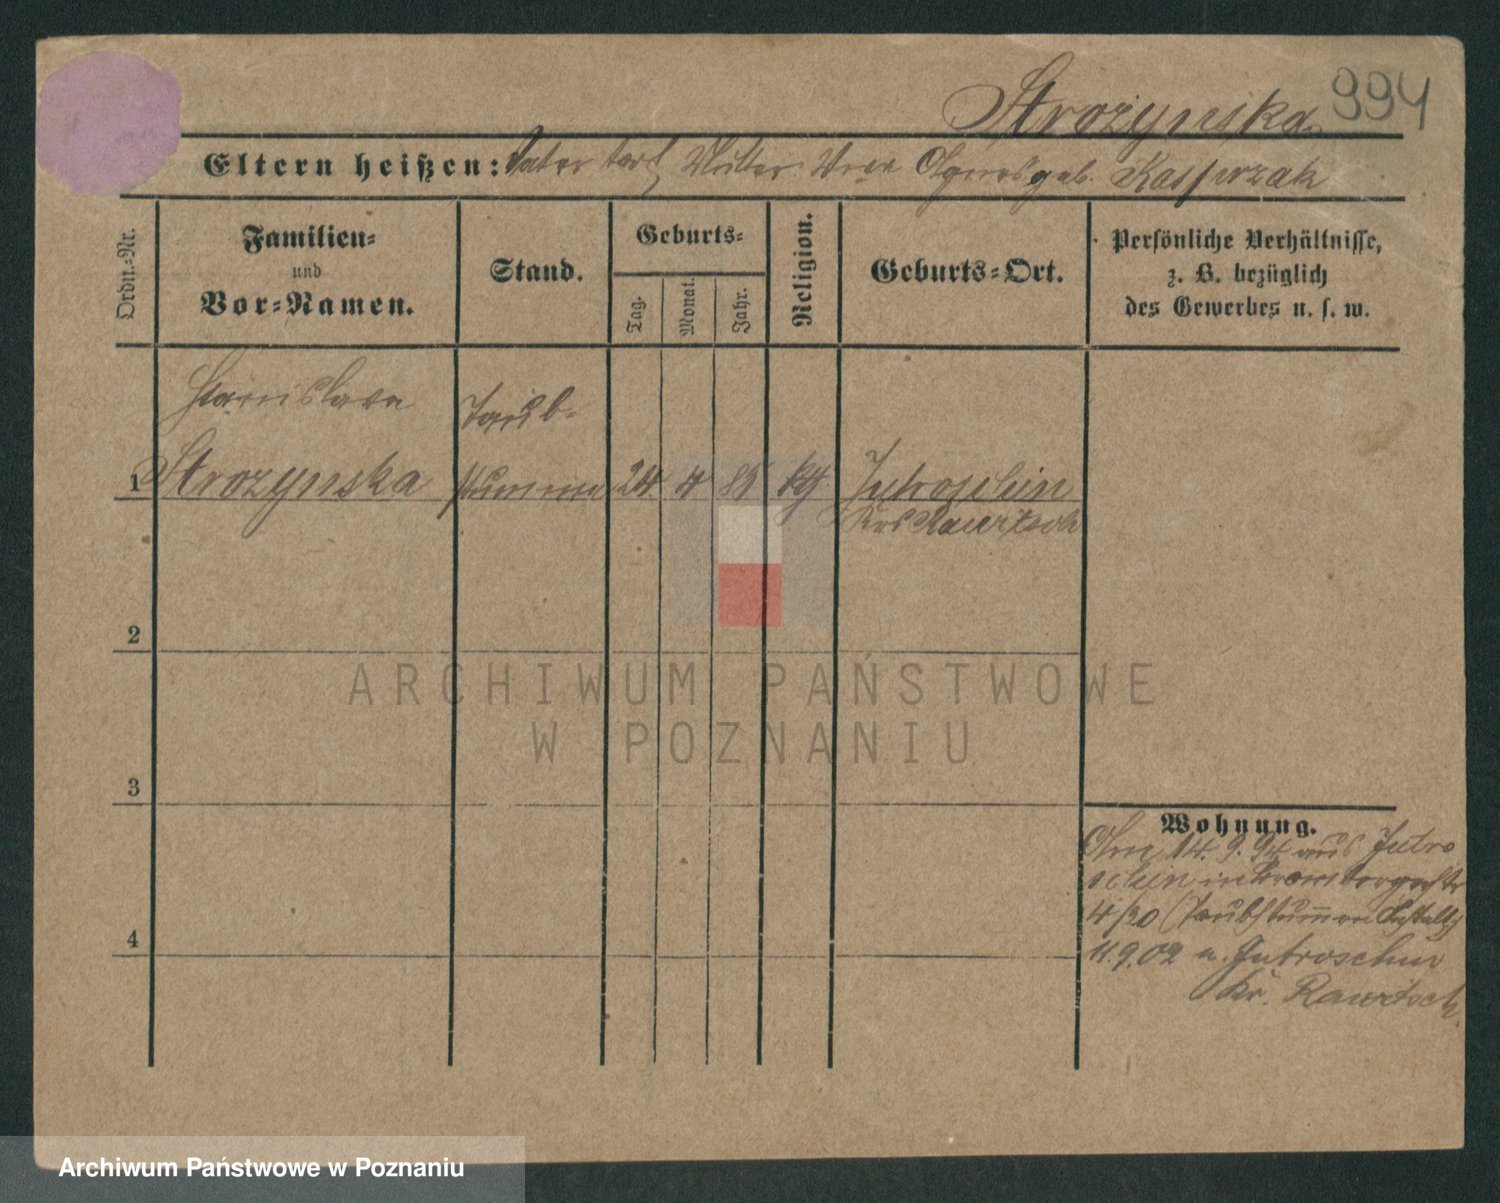 Strożynska
994
Eltern heißen: Vater tot, Mutter: Wwe Agnes geb. Kasprzak
Ordn.-Nr.
Familien-
und
Vor-Namen.
Stand.
Geburts-
Tag.
Monat.
Jahr.
Religion.
Geburts-Ort.
Persönliche Verhältnisse,
z. B. bezüglich
des Gewerbes u. s. w.
Stanislawa
Taub-
1 Strozynska stumme 24 4 85 kth Jutroschin
Krs Rawitsch
2
3
4
Wohnung.
14.9.94 aus Jutro
schin in Brombergerstr
4/20 (Taubstummen Anstalt)
11.9.02 n. Jutroschin
Kr. Rawitsch.
ARCHIWUM PAŃSTWOWE
W POZNANIU
Archiwum Państwowe w Poznaniu